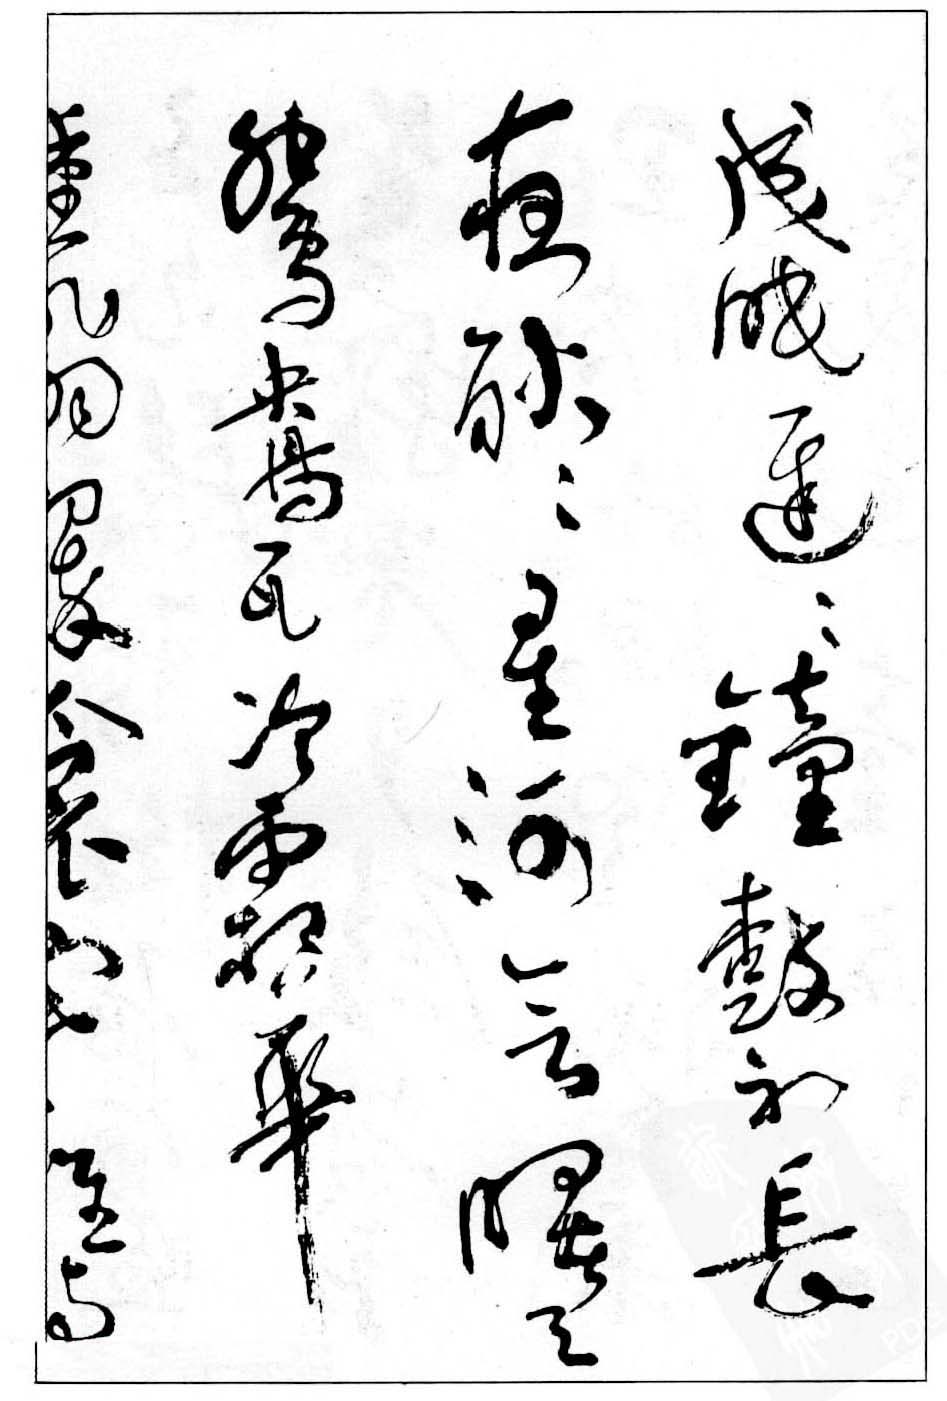 成眠遲〻鐘鼓初長
夜耿〻星河欲曙天
鴛鴦瓦冷霜華
重翡翠衾寒誰與